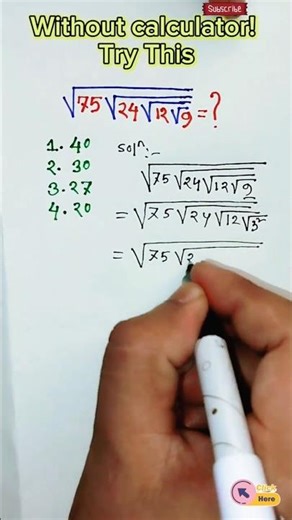 Subscribe
Without calculator!
Try This
√75√24√12√9=?
1. 40
2. 30
3. 27
4. 20
Solⁿ:-
√75√24√12√9
= √75√24√12√3²
= √75√2
Click
Here